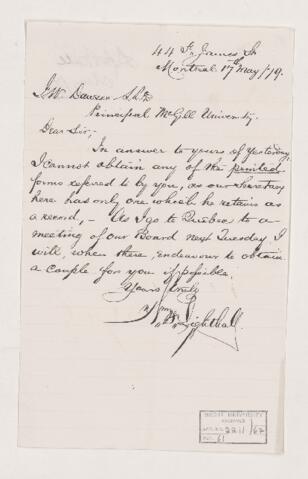 44 St. James St
Montreal 17th May/79.
J. W. Dawson
Principal McGill University.
Dear Sir;
In answer to yours of yesterday,
I cannot obtain any of the printed
forms referred to by you, as our Secretary
here has only one which he retains as
a record, – As I go to Quebec to a
meeting of our Board next Tuesday I
will, when there, endeavour to obtain
a couple for you if possible.
Yours truly
Lighthall.
McGILL UNIVERSITY
ARCHIVES
2211/67
61